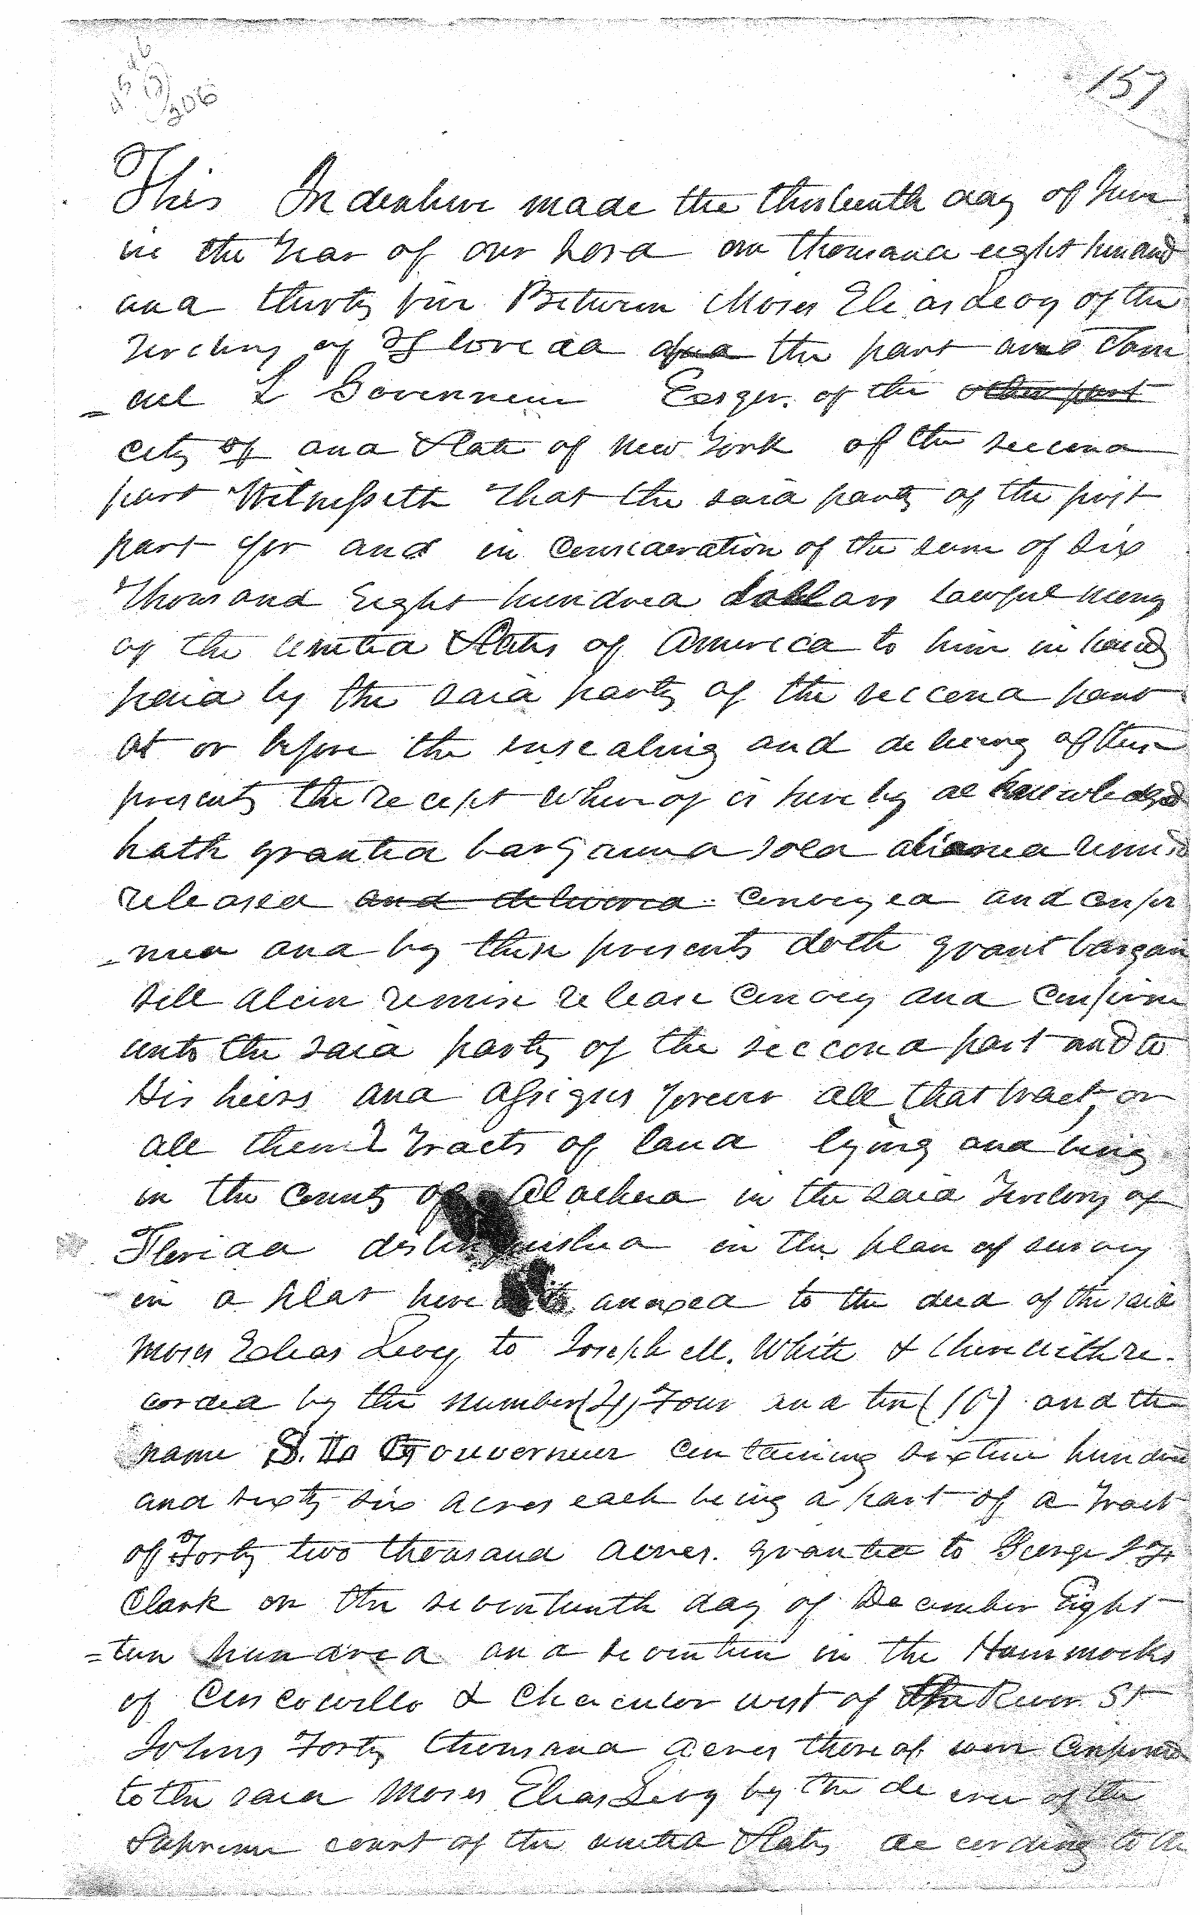 157
206
This Indenture made the thirteenth day of June
in the Year of our Lord one thousand eight hundred
and thirty five Between Moses Elias Levy of the
Territory of Florida the part and Sam
=uel L Governeur Esqr. of the other part
city of and State of New York of the second
part Witnesseth that the said party of the first
part for and in consideration of the sum of six
Thousand Eight hundred dollars lawful money
of the United States of America to him in hand
paid by the said party of the second part
at or before the ensealing and delivery of these
presents the receipt whereof is hereby acknowledged
hath granted bargained sold aliened remised
released and delivered conveyed and confir
-med and by these presents doth grant bargain
sell alein remise release convey and confirm
unto the said party of the second part and to
His heirs and assigns forever all that tract, or
all them 2 Tracts of land lying and being
in the county of Alachua in the said Territory of
Florida distinguished in the plan of survey
in a plat here with annexed to the deed of the said
Moses Elias Levy to Joseph M. White & therewith re-
corded by the number (4) Four and ten (10) and the
name S. L. Gouverneur containing sixteen hundred
and sixty six acres each being a part of a Tract
of Forty two thousand acres. granted to George I F
Clark on the seventeenth day of December Eight-
=teen hundred and seventeen in the Hammocks
of Cuscowillo & Chacalor west of the River St
Johns Forty thousand acres thereof were confirmed
to the said Moses Elias Levy by the decree of the
Supreme court of the united States according to the